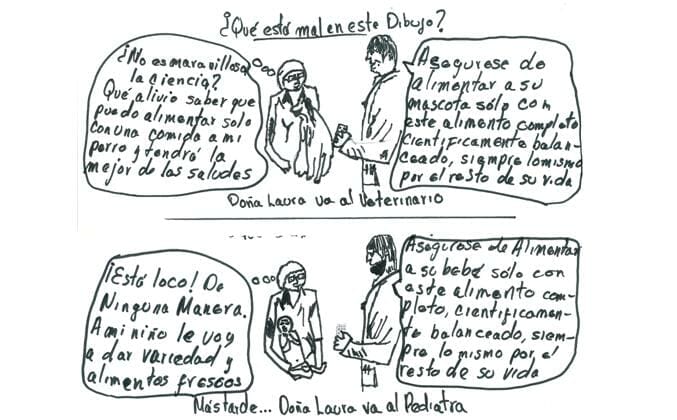 ¿Qué está mal en este Dibujo?
¿No es maravillosa
la ciencia?
Qué alivio saber que
puedo alimentar solo
con una comida a mi
perro y tendrá la
mejor de las saludes
Asegurese de
alimentar a su
mascota sólo con
este alimento completo
científicamente balan-
ceado, siempre lo mismo
por el resto de su vida
Doña Laura va al Veterinario
¡Está loco! De
Ninguna Manera.
A mi niño le voy
a dar variedad y
alimentos frescos
Asegurese de Alimentar
a su bebé sólo con
este alimento com-
pleto, científicamen-
te balanceado, siem-
pre lo mismo por el
resto de su vida
Más tarde... Doña Laura va al Pediatra